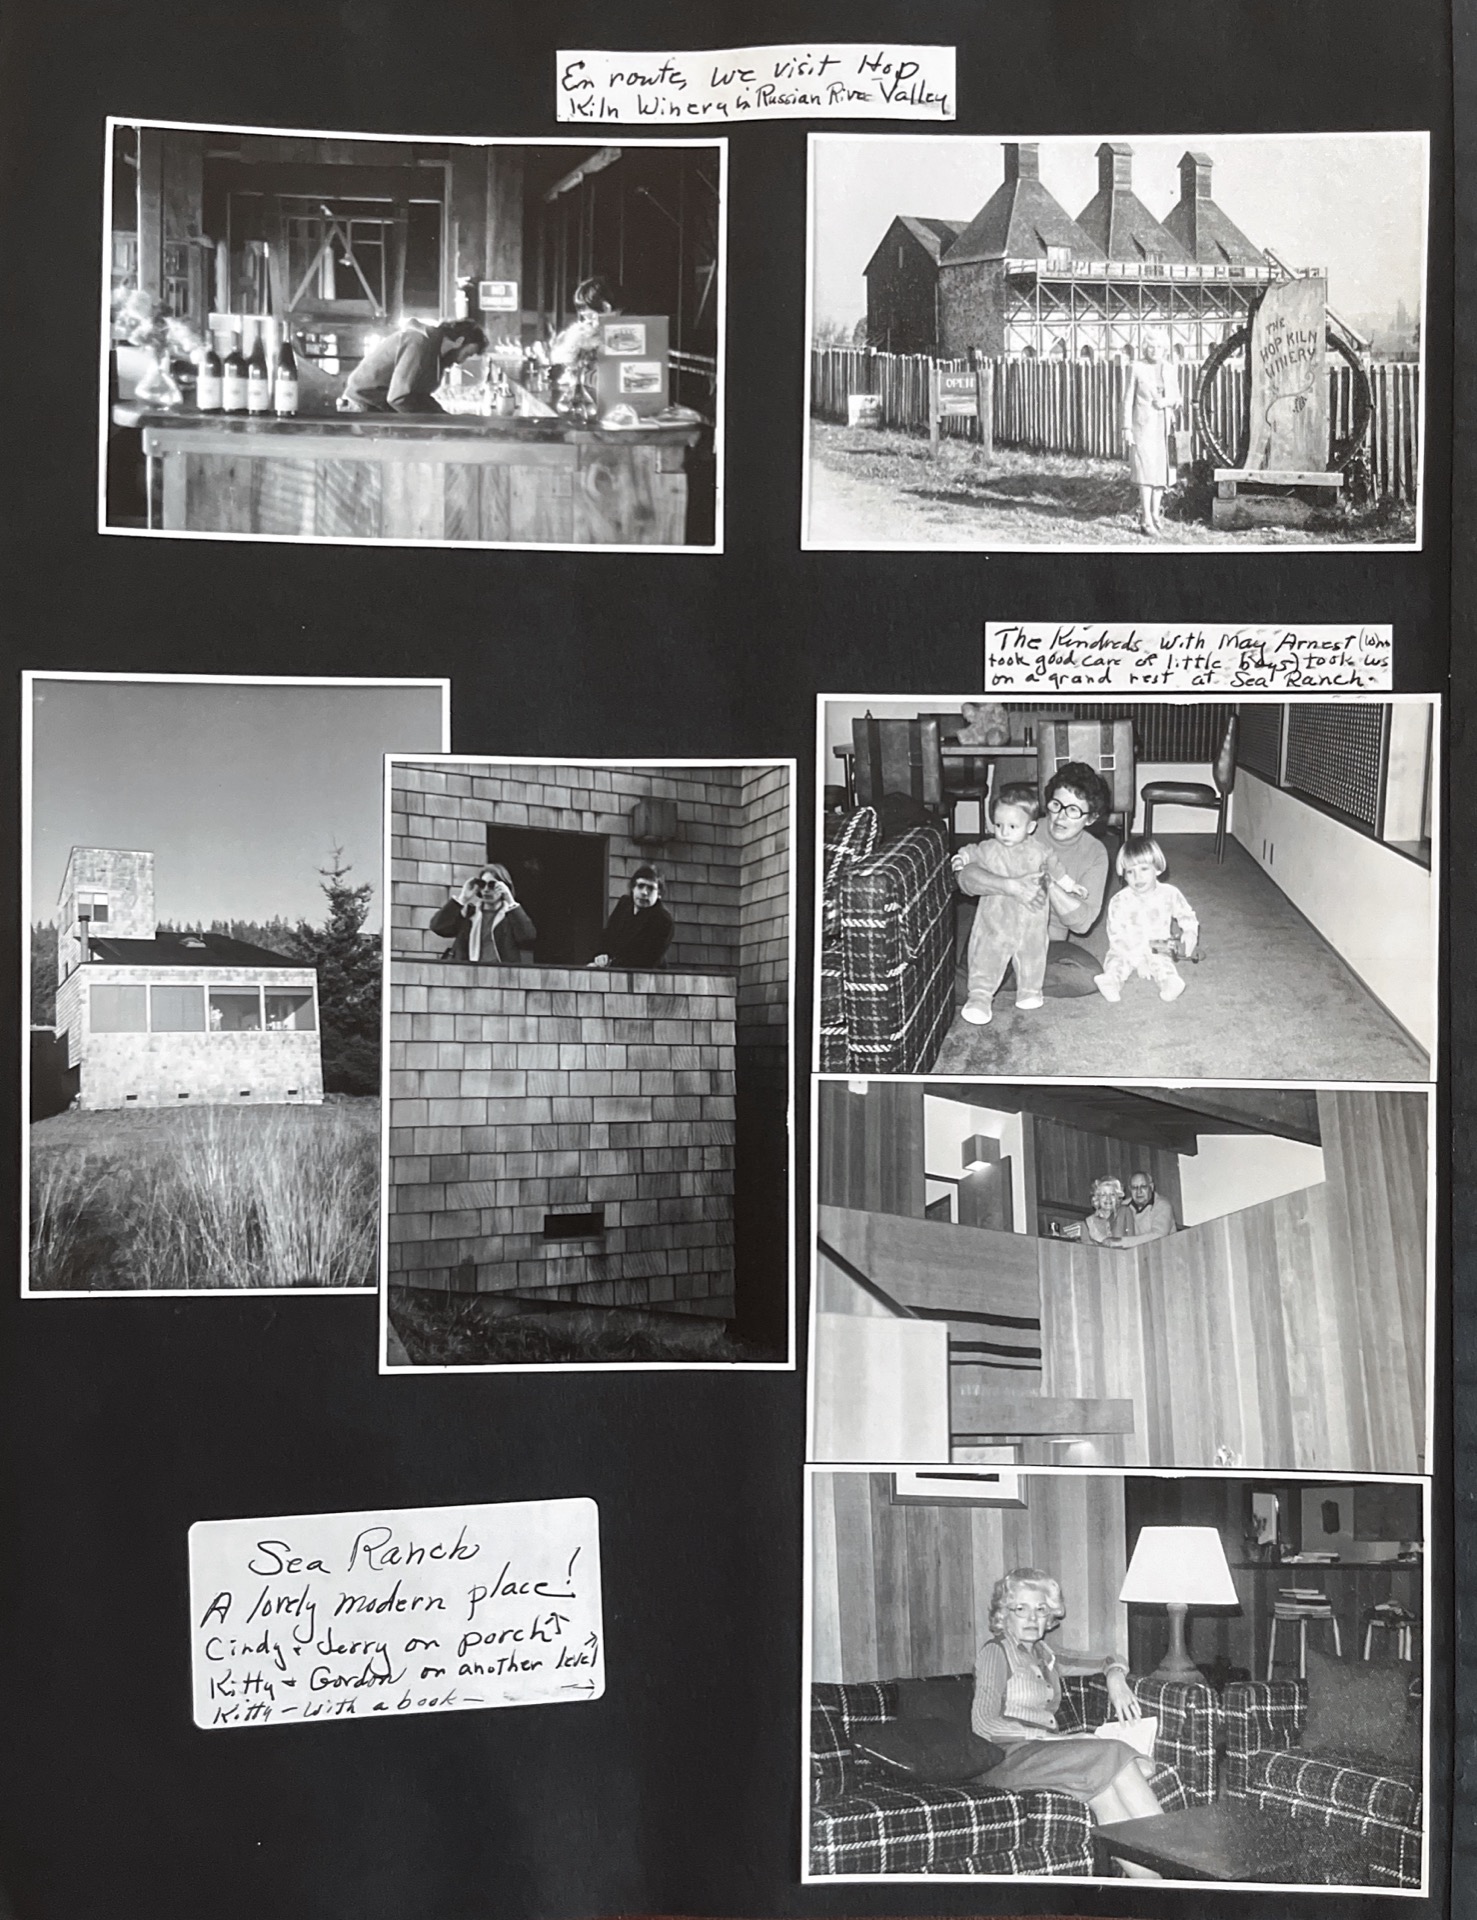 En route, we visit Hop
Kiln Winery in Russian River Valley
NO
OPEN
THE
HOP KILN
WINERY
The Kindreds with May Arnest (who
took good care of little boys) took us
on a grand rest at Sea Ranch.
Sea Ranch
A lovely modern place!
Cindy & Jerry on porch ↑
Kitty & Gordon on another level →
Kitty - with a book - →